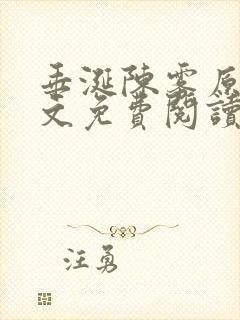 垂涎陳雾原
文免費閱讀
汪勇